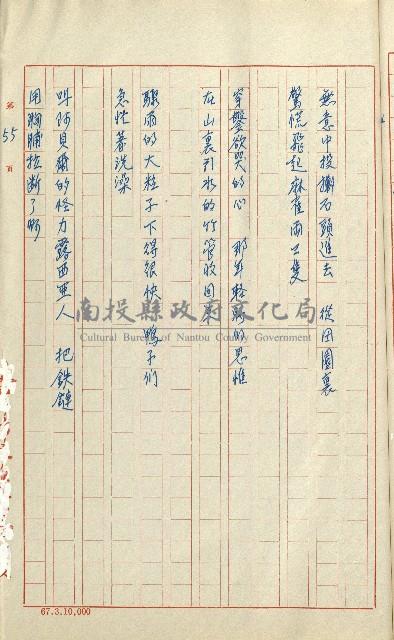 無意中投擲石頭進去 從田園裏
驚慌飛起麻雀兩三隻
穿鑿欲哭的心 那年輕的思惟
在山裏引水的竹管收回來
驟雨的大粒子下得很快 鴨子們
急忙著洗澡
叫阿貝爾的怪力露西亞人 把鉄鏈
用胸脯拉斷了啊
第55頁
南投縣政府文化局
Cultural Bureau of Nantou County Government
67.3.10,000